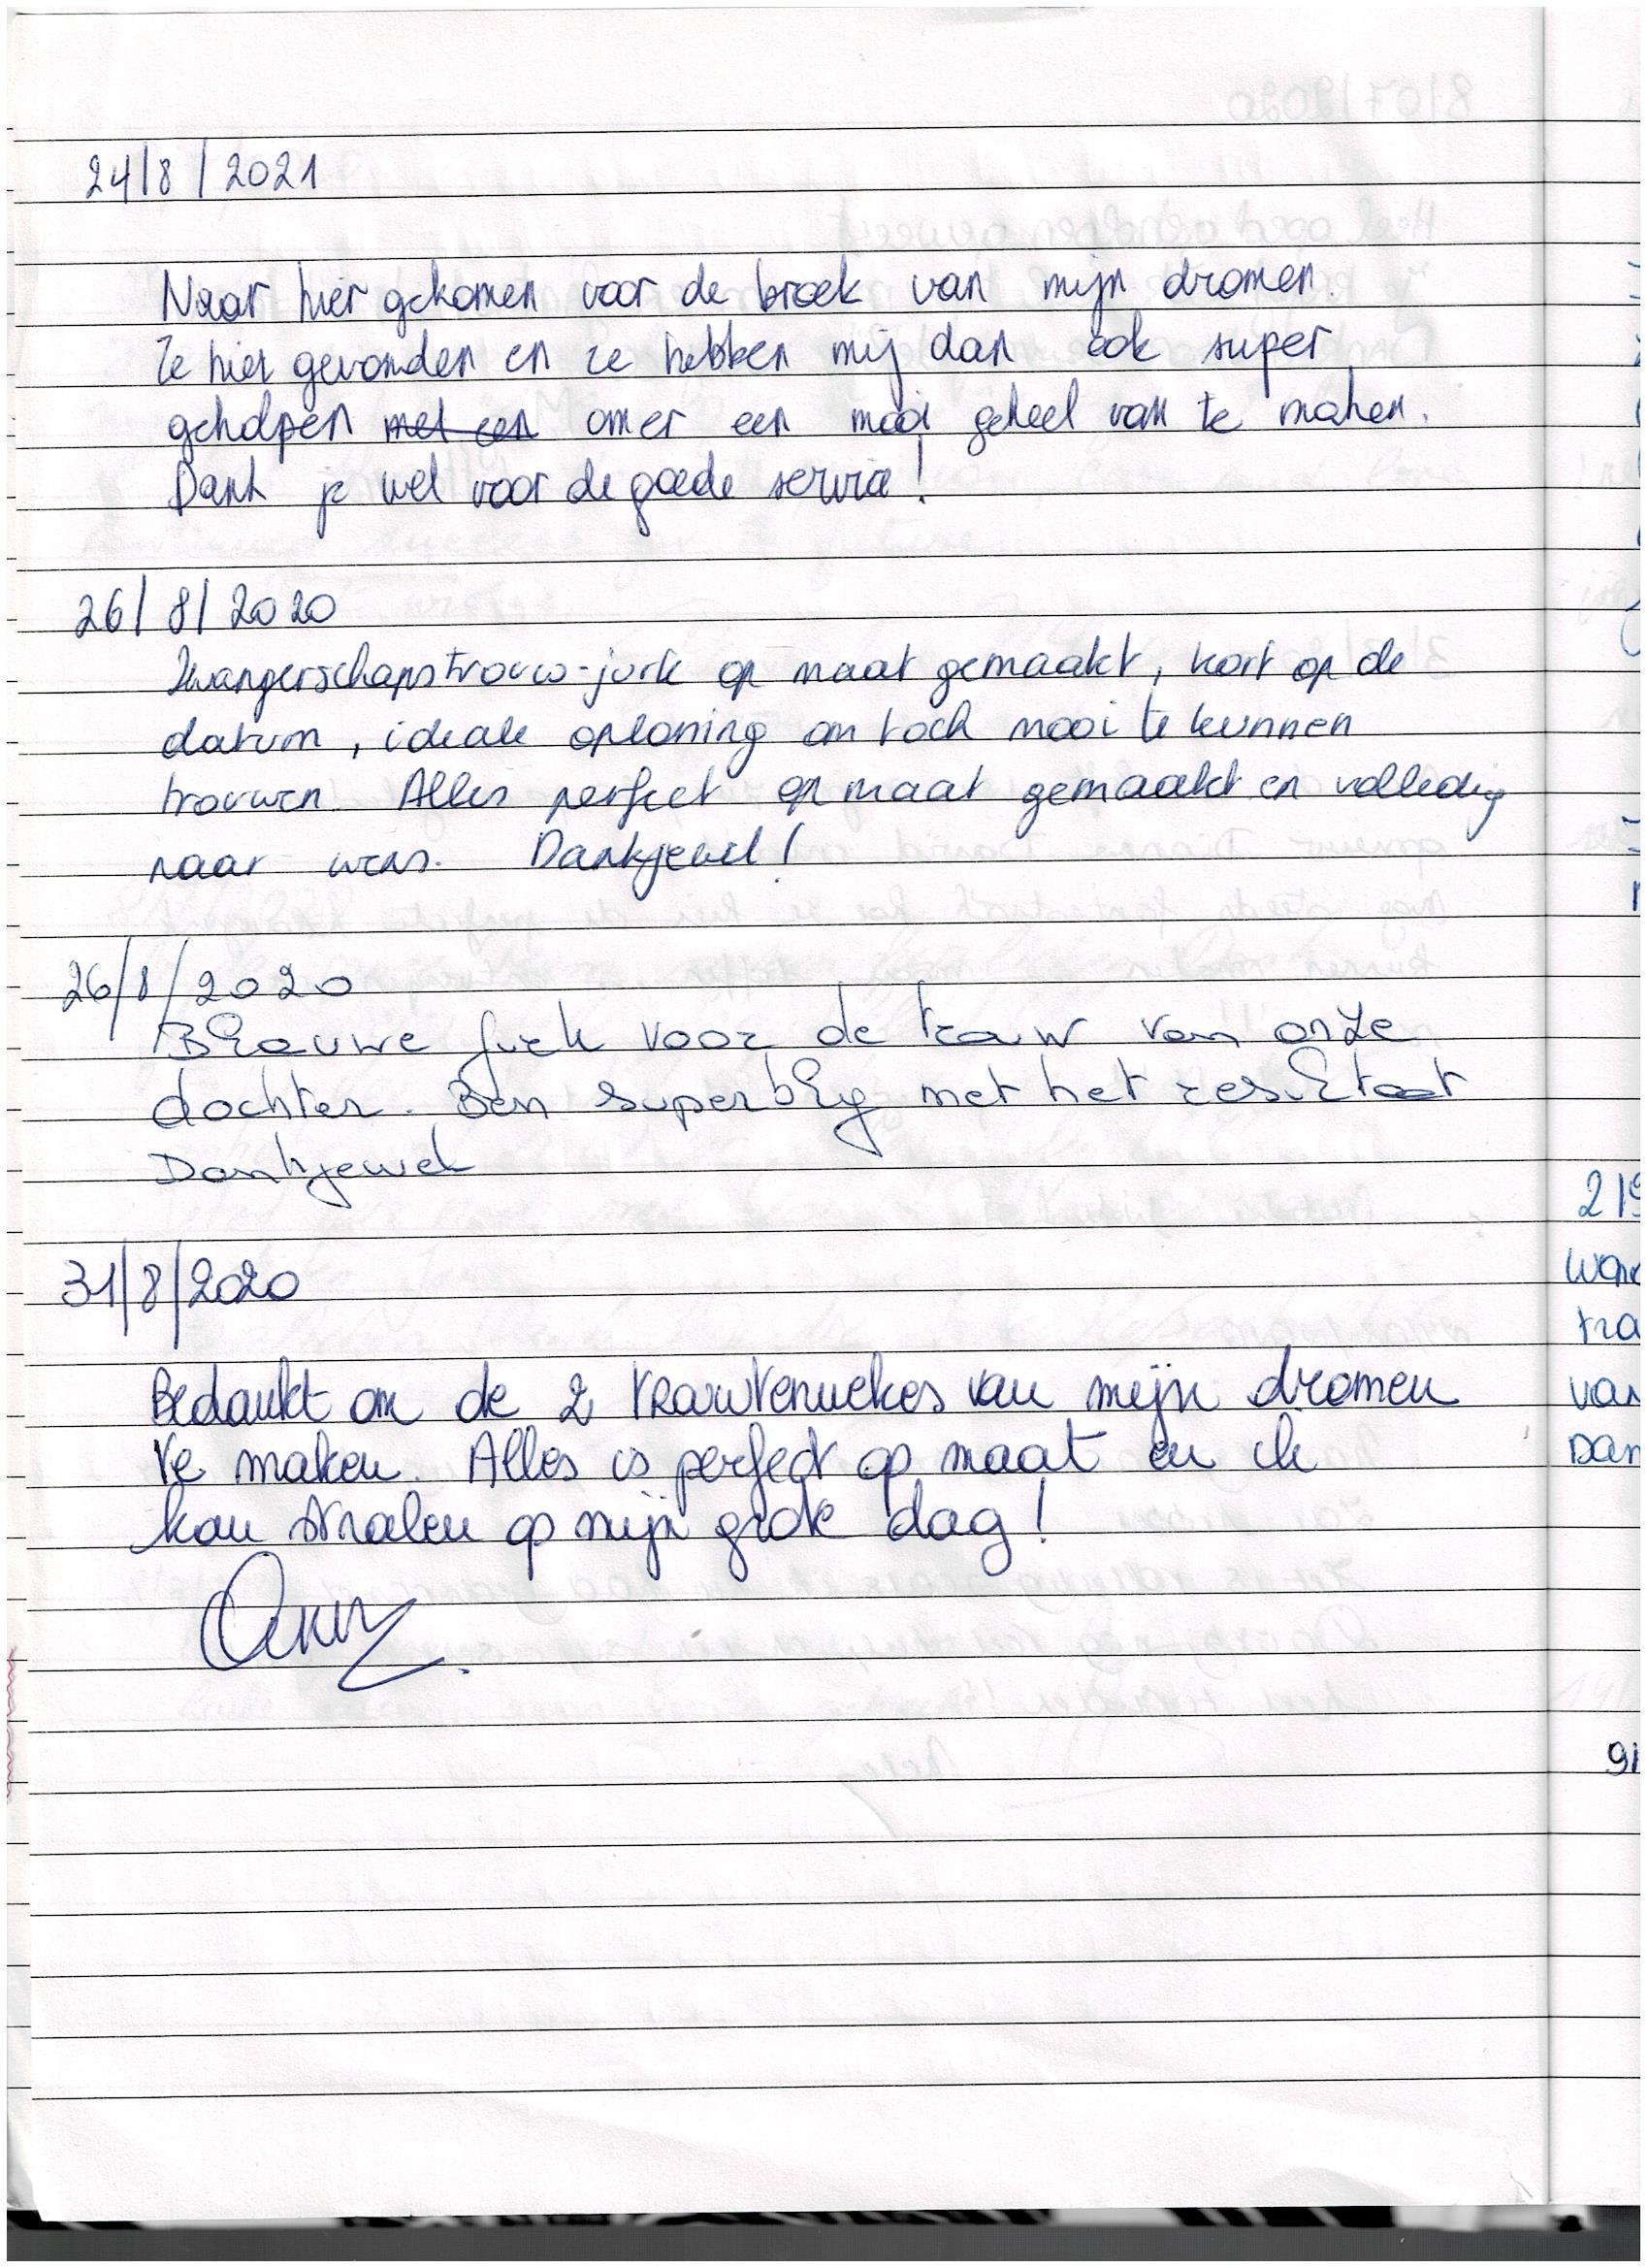 24/8/2021
Naar hier gekomen voor de broek van mijn dromen.
Ze hier gevonden en ze hebben mij dan ook super
geholpen met een om er een mooi geheel van te maken.
Dank je wel voor de goede service!
26/8/2020
Zwangerschapstrouw-jurk op maat gemaakt, kort op de
datum, ideale oplossing om toch mooi te kunnen
trouwen. Alles perfect op maat gemaakt en volledig
naar wens. Dankjewel!
26/8/2020
Blauwe jurk voor de trouw van onze
dochter. Ben superblij met het resultaat
Dankjewel
31/8/2020
Bedankt om de 2 trouwtenuekes van mijn dromen
te maken. Alles is perfect op maat en ik
kan stralen op mijn grote dag!